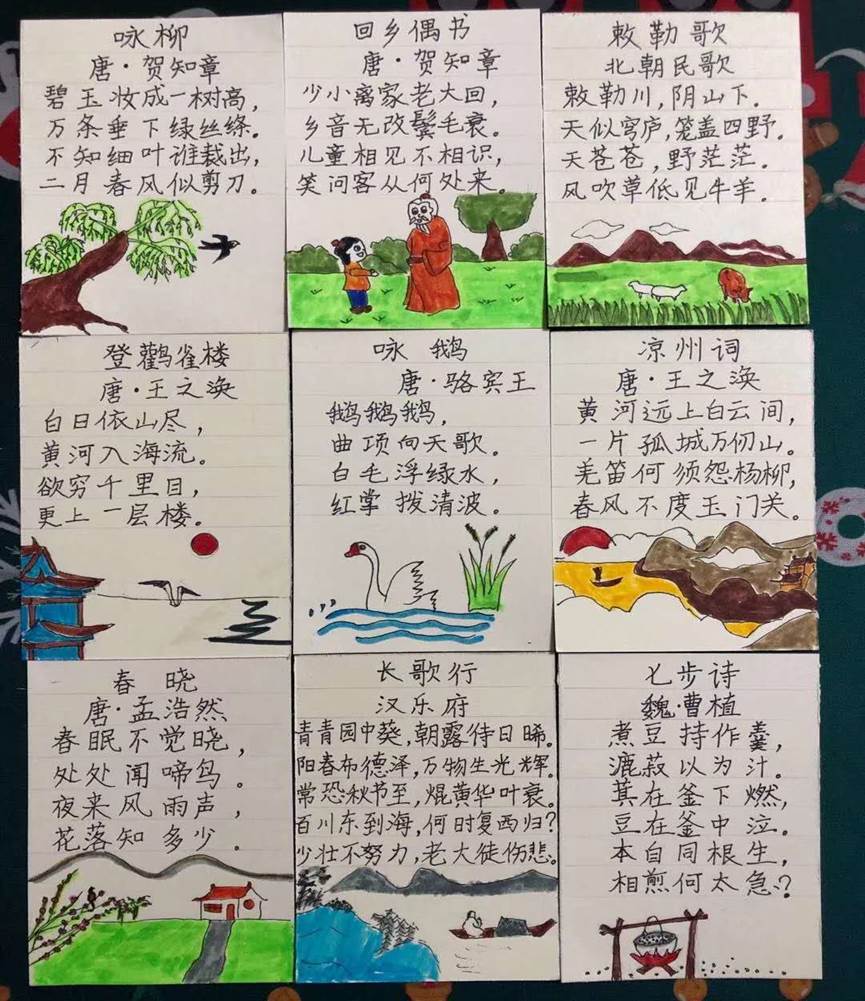 咏柳
唐·贺知章
碧玉妆成一树高，
万条垂下绿丝绦。
不知细叶谁裁出，
二月春风似剪刀。
回乡偶书
唐·贺知章
少小离家老大回，
乡音无改鬓毛衰。
儿童相见不相识，
笑问客从何处来。
敕勒歌
北朝民歌
敕勒川，阴山下。
天似穹庐，笼盖四野。
天苍苍，野茫茫。
风吹草低见牛羊。
登鹳雀楼
唐·王之涣
白日依山尽，
黄河入海流。
欲穷千里目，
更上一层楼。
咏鹅
唐·骆宾王
鹅鹅鹅，
曲项向天歌。
白毛浮绿水，
红掌拨清波。
凉州词
唐·王之涣
黄河远上白云间，
一片孤城万仞山。
羌笛何须怨杨柳，
春风不度玉门关。
春晓
唐·孟浩然
春眠不觉晓，
处处闻啼鸟。
夜来风雨声，
花落知多少。
长歌行
汉乐府
青青园中葵，朝露待日晞。
阳春布德泽，万物生光辉。
常恐秋节至，焜黄华叶衰。
百川东到海，何时复西归？
少壮不努力，老大徒伤悲。
七步诗
魏·曹植
煮豆持作羹，
漉菽以为汁。
萁在釜下燃，
豆在釜中泣。
本自同根生，
相煎何太急？